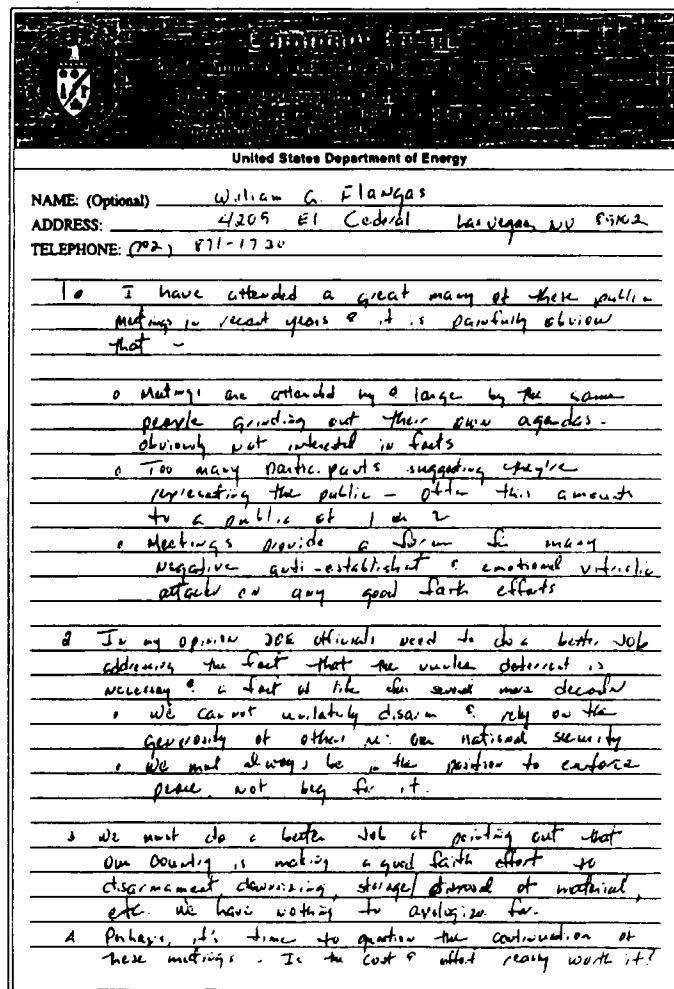 United States Department of Energy
NAME: (Optional) William G. Flangas
ADDRESS: 4209 El Cederal Las Vegas, NV 89102
TELEPHONE: (702) 871-1730
1. I have attended a great many of these public
meetings in recent years & it is painfully obvious
that -
o Meetings are attended by & large by the same
people grinding out their own agendas -
obviously not interested in facts
o Too many participants suggesting they're
representing the public - often this amounts
to a public of 1 or 2
o Meetings provide a forum for many
negative anti-establishment & emotional vitriolic
attacks on any good faith efforts
2 In my opinion DOE officials need to do a better job
addressing the fact that the nuclear deterrent is
necessary & a fact of life for several more decades
o We cannot unilaterally disarm & rely on the
generosity of others re: our national security
o We must always be in the position to enforce
peace, not beg for it.
3 We must do a better job of pointing out that
our country is making a good faith effort to
disarmament, downsizing, storage/disposal of material,
etc. We have nothing to apologize for.
4 Perhaps, it's time to question the continuation of
these meetings. Is the cost & effort really worth it?